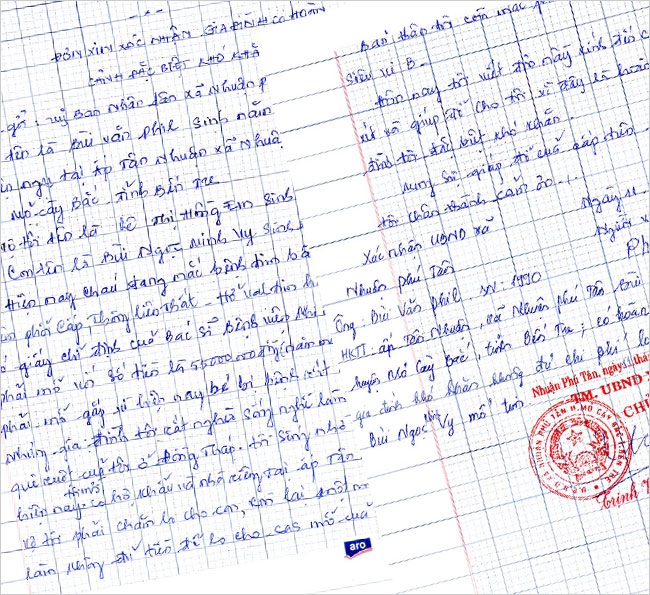 ĐƠN XIN XÁC NHẬN GIA ĐÌNH CÓ HOÀN
CẢNH ĐẶC BIỆT KHÓ KHĂ
gởi: Uỷ Ban Nhân dân xã Nhuận P
tên là Bùi Văn Phil Sinh năm
ngụ tại ấp Tân Nhuận xã Nhuậ
Mỏ Cày Bắc - Tỉnh Bến Tre
tôi tên là Lê Thị Hồng Em Sinh
Con tên là Bùi Ngọc Minh Vy Sinh
Hiện nay cháu đang mắc bệnh tim bẩ
phổi cấp, thông liên thất - Hở van tim h
giấy chỉ định của Bác sĩ Bệnh viện Nhi
phải mổ với số tiền là 55000.000đ (năm m
phải mổ gấp từ hiện nay bé bị bệnh
Nhưng gia đình tôi cất nghĩa sống nghề làm
quê cuối cùng tôi ở Đồng Tháp. tôi sống nhờ
hiện nay mới có hộ khẩu và nhà riêng tại ấp Tân
vợ tôi phải chăm lo cho con, Em lại
làm không đủ tiền để lo cho cas mổ của
Bản thân tôi còn mắc
Siêu vi B.
Hôm nay tôi viết đơn này kính đến
xã giúp đỡ cho tôi vì đây là hoàn
đình tôi đặc biệt khó khăn.
mong sự giúp đỡ của cấp trên
tôi chân thành cảm ơn...
Ngày 11
Người
Ph
Xác nhận UBND xã
Nhuận Phú Tân
Ông: Bùi Văn Phil. SN. 1990
HKTT: ấp Tân Nhuận, xã Nhuận Phú Tân
huyện Mỏ Cày Bắc, tỉnh Bến Tre; có hoàn
gia đình khó khăn không đủ chi phí lo
Bùi Ngọc Minh Vy mổ tim
Nhuận Phú Tân, ngày thá
TM. UBND X
CHỦ
Trịnh
aro